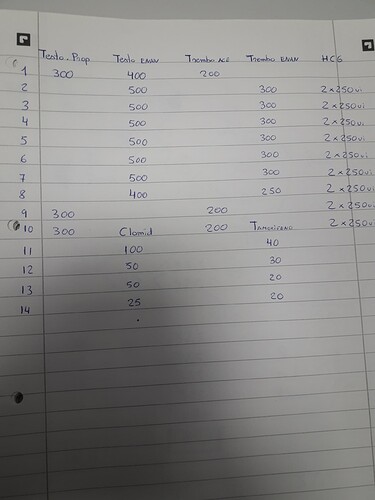 Testo-Prop Testo ENAN Trembo ACE Trembo ENAN HCG
1 300 400 200
2 500 300 2x250ui
3 500 300 2x250ui
4 500 300 2x250ui
5 500 300 2x250ui
6 500 300 2x250ui
7 500 300 2x250ui
8 400 250 2x250ui
9 300 200 2x250ui
10 300 Clomid 200 2x250ui
11 100 40
12 50 30
13 50 20
14 25 20